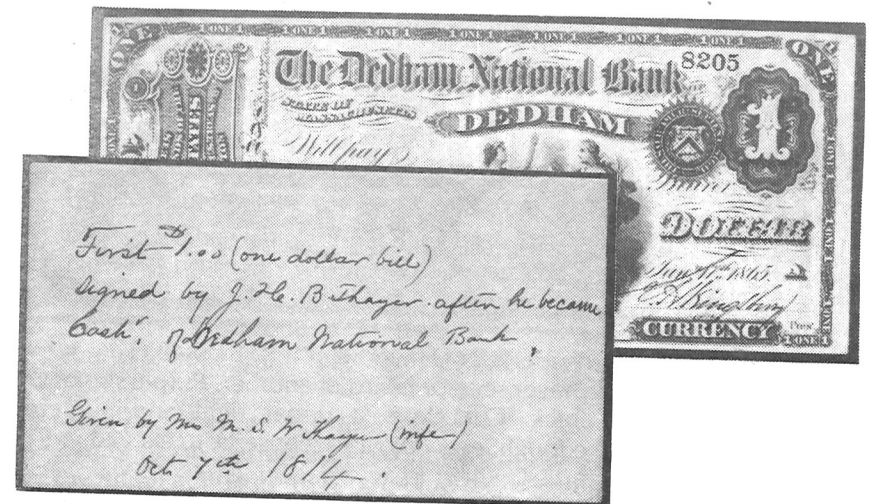 ONE
ONE
The Dedham National Bank
8205
STATE OF
MASSACHUSETTS
DEDHAM
Will pay
1
Bearer
DOLLAR
1865.
CURRENCY
Pres't
First $1.00 (one dollar bill)
signed by J. H. B. Thayer. after he became
Cashr. of Dedham National Bank,
Given by Mrs M. S. W Thayer (wife)
Oct 7th 1814.